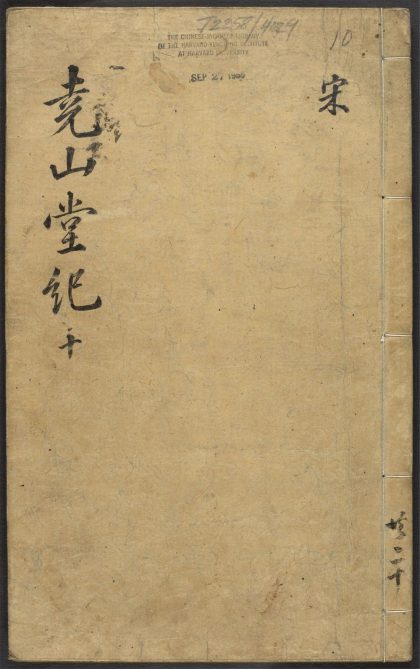 T2258/4129
THE CHINESE-JAPANESE LIBRARY
OF THE HARVARD-YENCHING INSTITUTE
AT HARVARD UNIVERSITY
SEP 2, 1940
10
宋
堯山堂紀
十
共二十